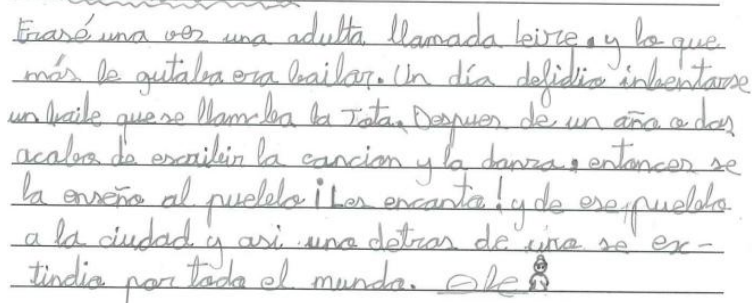 Erasé una vez una adulta llamada leire. y lo que
más le gutaba era bailar. Un día defidio inbentarse
un baile que se llamaba la Jota. Despues de un año o dos
acaboo de escribir la cancion y la danza. entonces se
la enseño al pueblo ¡Les encanto! y de ese pueblo
a la ciudad y asi uno detras de uno se ex-
tindio por todo el mundo. Ole